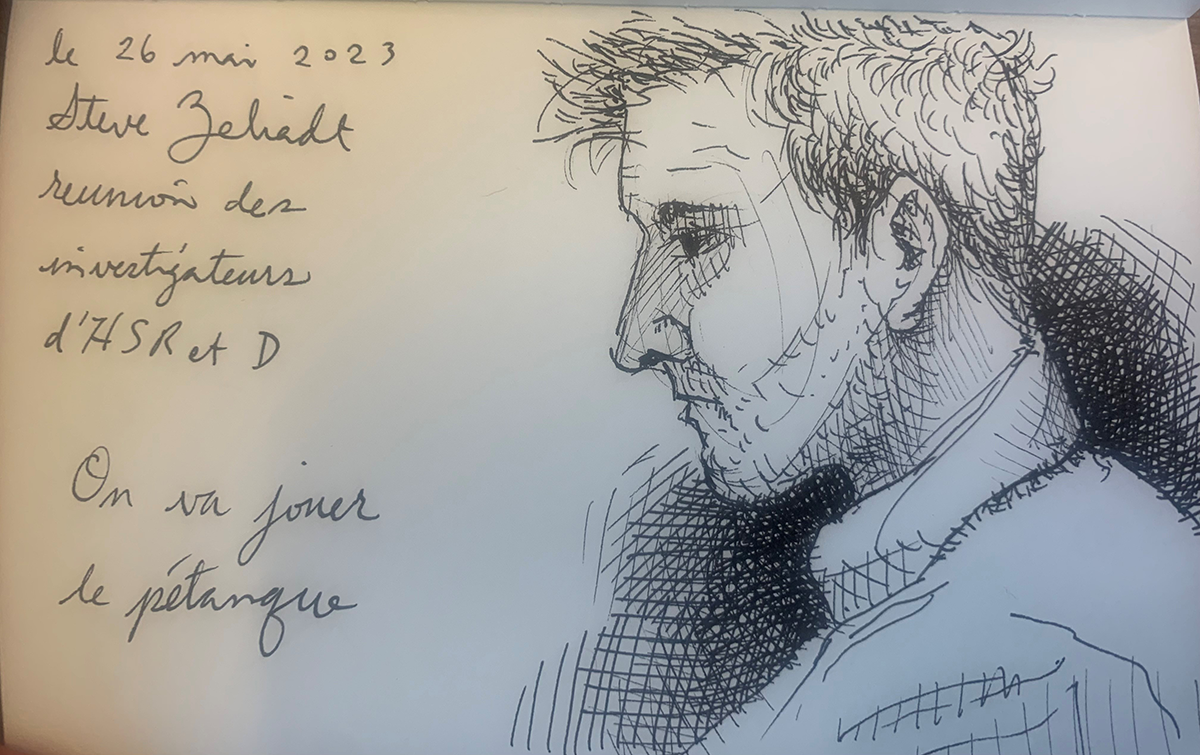 le 26 mai 2023
Steve Zeliadt
reunion des
investigateurs
d'HSR et D
On va jouer
le pétanque